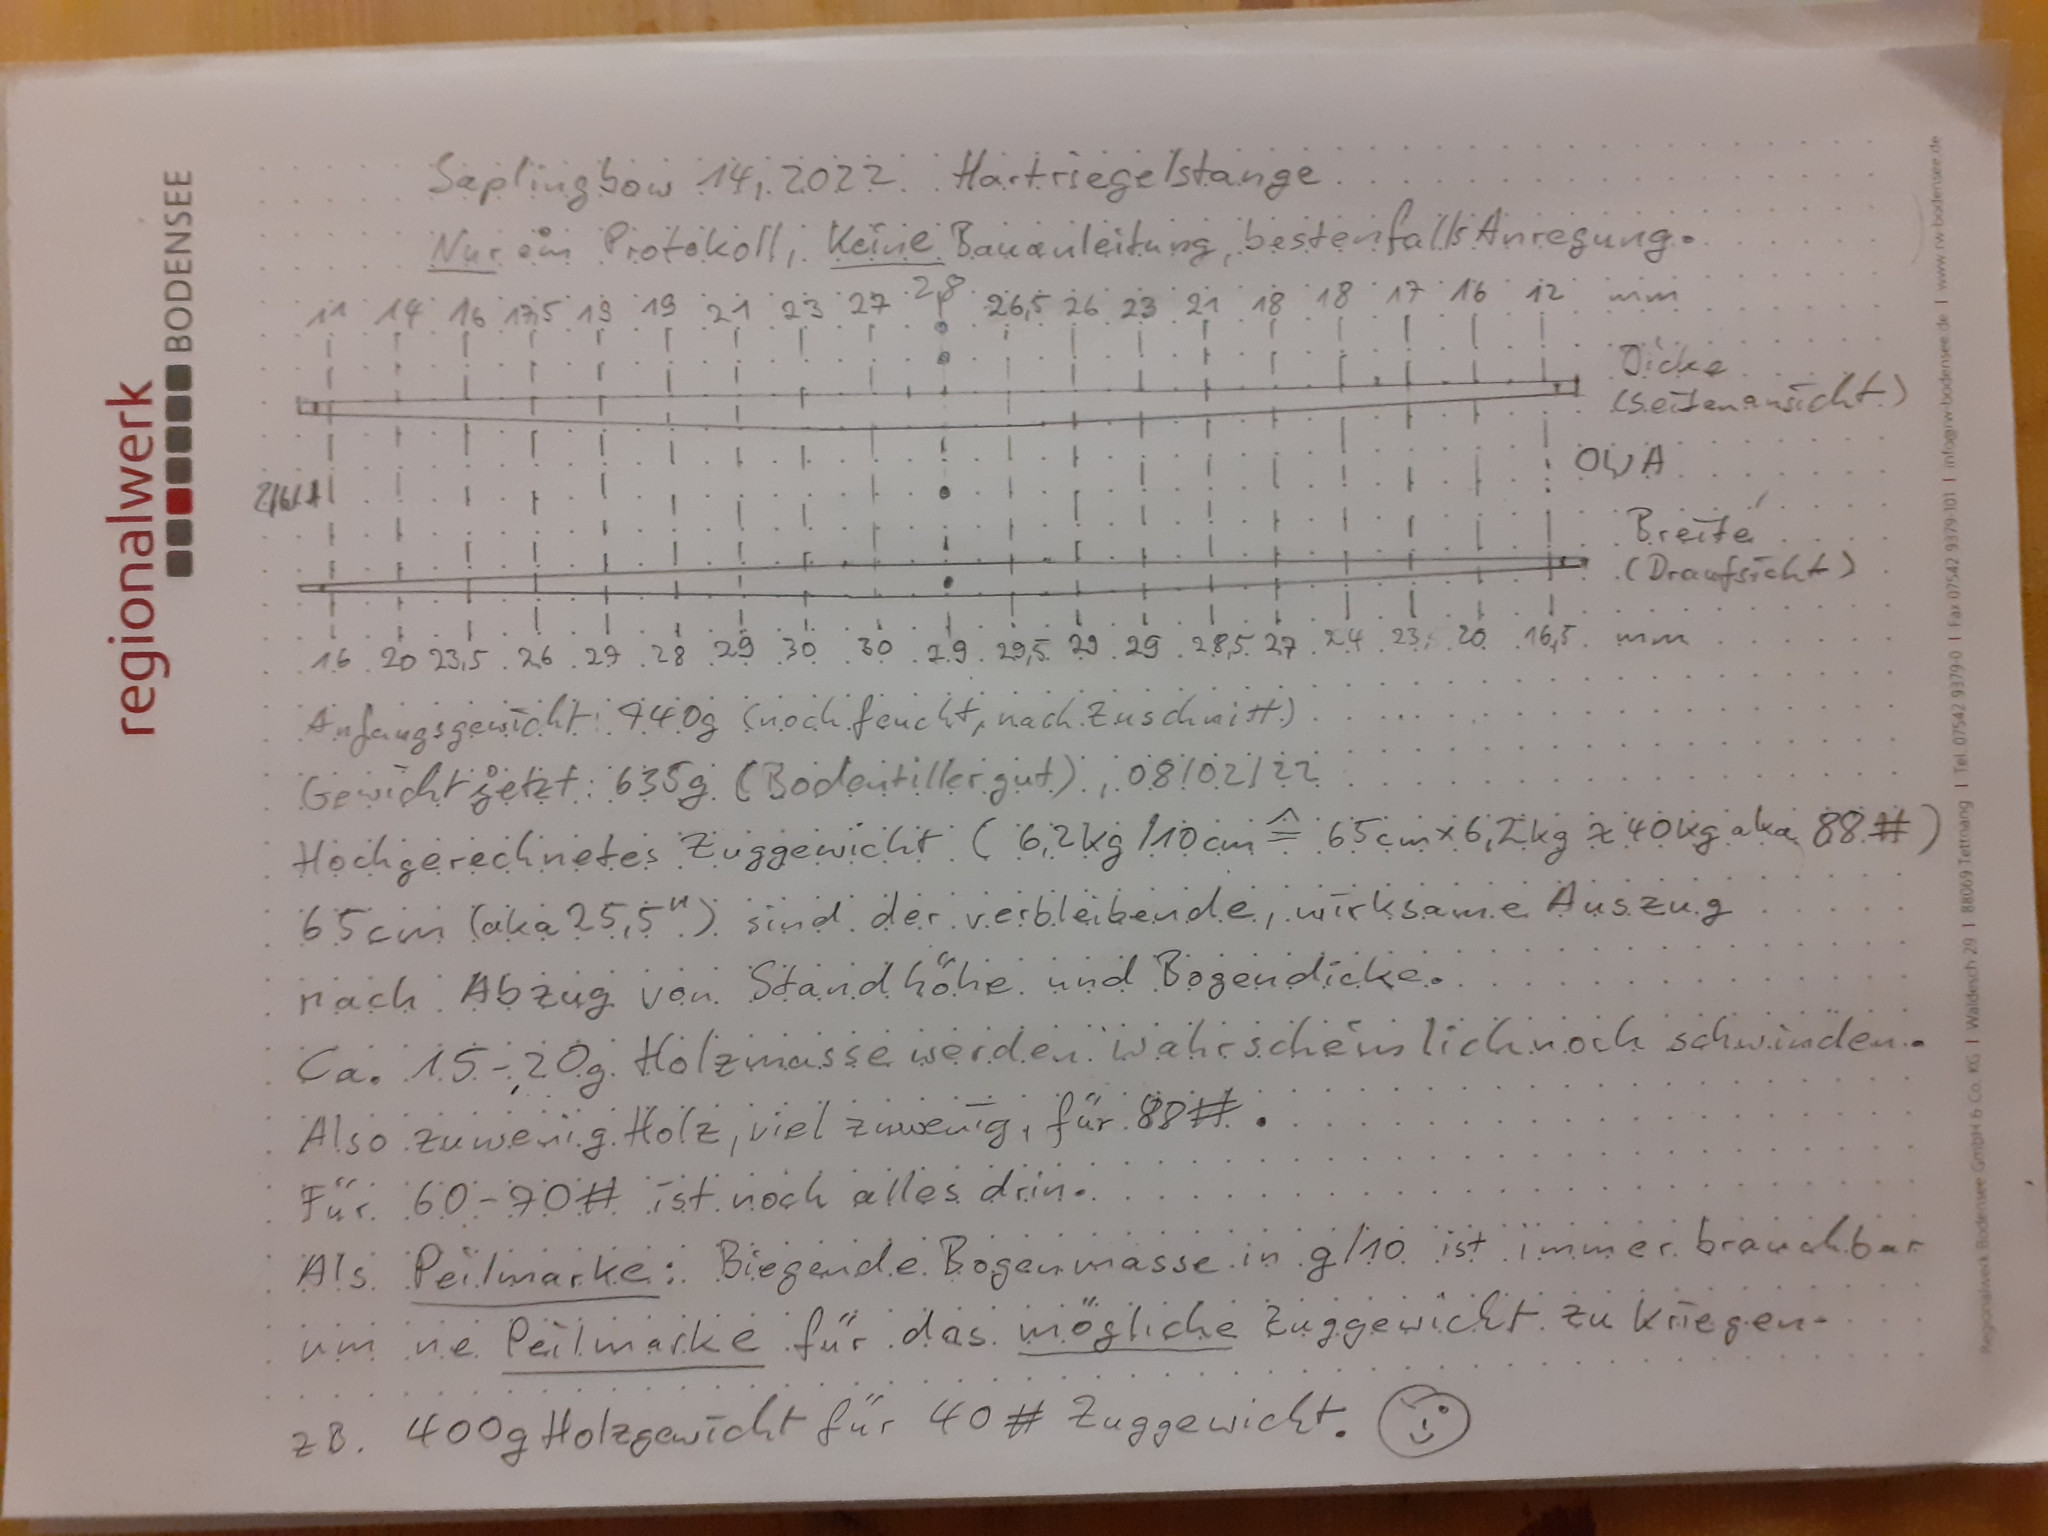 regionalwerk
BODENSEE
Saplingbow 14, 2022 Hartriegelstange
Nur ein Protokoll, Keine Bauanleitung, bestenfalls Anregung.
11 14 16 17,5 19 19 21 23 27 28 26,5 26 23 21 18 18 17 16 12 mm
Dicke
(Seitenansicht)
OWA
Breite
(Draufsicht)
16 20 23,5 26 27 28 29 30 30 29 29,5 29 29 28,5 27 24 23 20 16,5 mm
Anfangsgewicht: 740g (noch feucht, nach Zuschnitt)
Gewicht jetzt: 635g (Bodentiller gut), 08/02/22
Hochgerechnetes Zuggewicht (6,2kg/10cm ≙ 65cm x 6,2kg ≈ 40kg aka 88#)
65cm (aka 25,5") sind der verbleibende, wirksame Auszug
nach Abzug von Standhöhe und Bogendicke.
Ca. 15-20g Holzmasse werden wahrscheinlich noch schwinden.
Also zuwenig Holz, viel zuwenig, für 88#.
Für 60-70# ist noch alles drin.
Als Peilmarke: Biegende Bogenmasse in g/10 ist immer brauchbar
um ne Peilmarke für das mögliche Zuggewicht zu kriegen.
zB. 400g Holzgewicht für 40# Zuggewicht.
Regionalwerk Bodensee GmbH & Co. KG I Waldesch 29 I 88069 Tettnang I Tel. 07542 9379-0 I Fax 07542 9379-101 I info@rw-bodensee.de I www.rw-bodensee.de